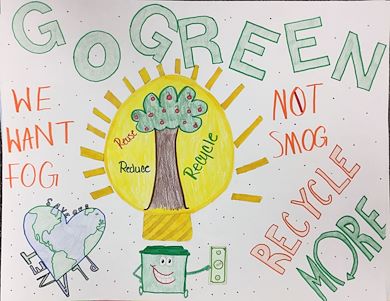 GO GREEN
WE
WANT
FOG
NOT
SMOG
Reuse
Reduce
Recycle
RECYCLE
MORE
SAVE OUR
PLANET